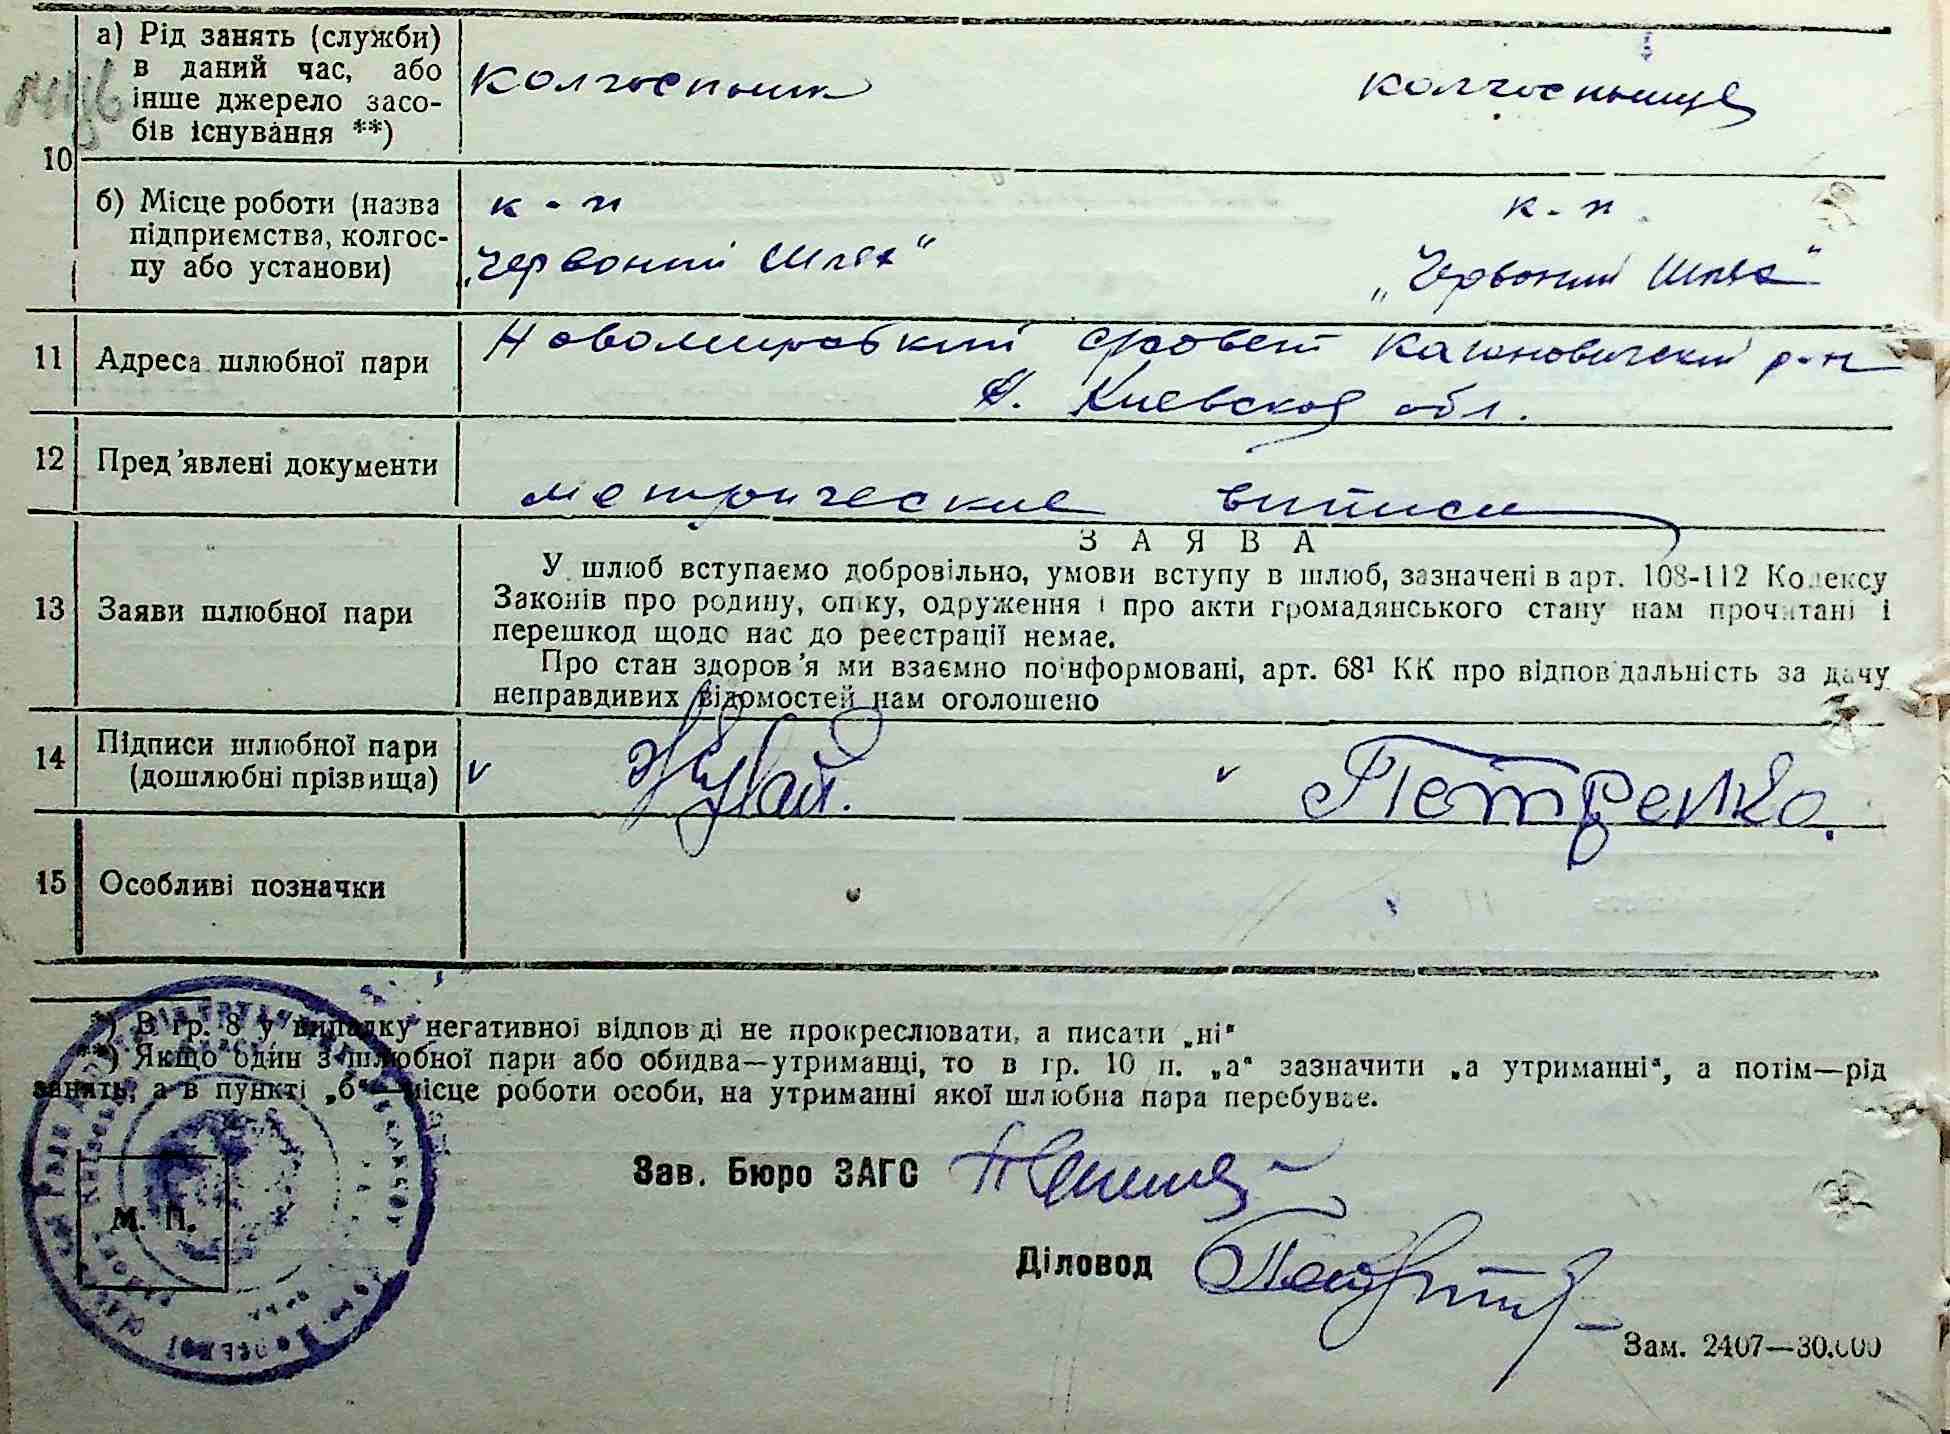 а) Рід занять (служби)
в даний час, або
інше джерело засо-
бів існування **)
колгоспник колгоспница
10
б) Місце роботи (назва
підприємства, колгос-
пу або установи)
к-п к.п.
„Червоний Шлях“ „Червоний Шлях“
11 Адреса шлюбної пари
Кагановичский р-н
Киевской обл.
12 Пред'явлені документи
метрические виписи
13 Заяви шлюбної пари
ЗАЯВА
У шлюб вступаємо добровільно, умови вступу в шлюб, зазначені в арт. 108-112 Кодексу
Законів про родину, опіку, одруження і про акти громадянського стану нам прочитані і
перешкод щодо нас до реєстрації немає.
Про стан здоров'я ми взаємно поінформовані, арт. 68¹ КК про відповідальність за дачу
неправдивих відомостей нам оголошено
14 Підписи шлюбної пари
(дошлюбні прізвища)
v v Петренко.
15 Особливі позначки
*) В гр. 8 у випадку негативної відповіді не прокреслювати, а писати „ні“
**) Якщо один з шлюбної пари або обидва—утриманці, то в гр. 10 п. „а“ зазначити „а утриманні“, а потім—рід
занять, а в пункті „б“—місце роботи особи, на утриманні якої шлюбна пара перебуває.
Зав. Бюро ЗАГС
М. П.
Діловод
Зам. 2407—30.000